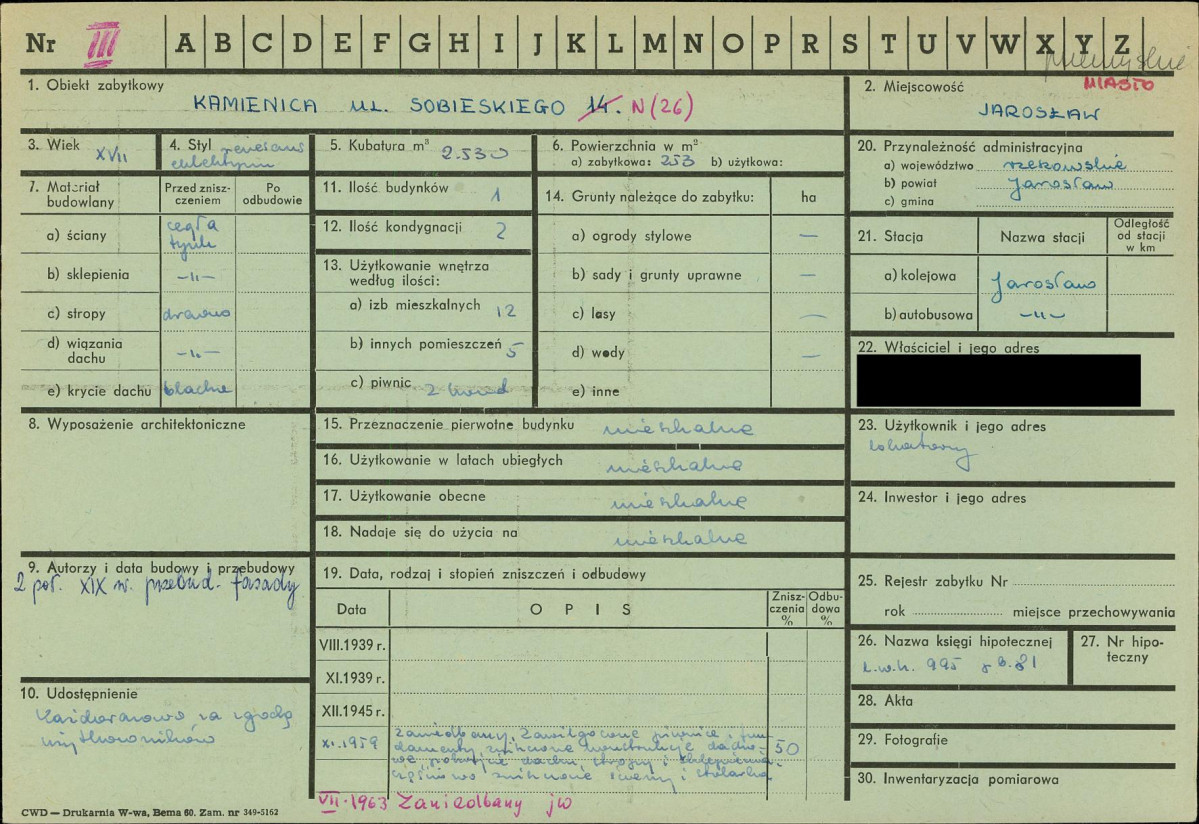 Nr III A B C D E F G H I J K L M N O P R S T U V W X Y Z
przemyskie
MIASTO
1. Obiekt zabytkowy
KAMIENICA UL. SOBIESKIEGO 14. N (26)
2. Miejscowość
JAROSŁAW
3. Wiek XVII
4. Styl renesans
eklektyzm
5. Kubatura m³ 2.530
6. Powierzchnia w m²
a) zabytkowa: 253 b) użytkowa:
7. Materiał budowlany
Przed zniszczeniem
Po odbudowie
a) ściany cegła
tynk
b) sklepienia —„—
c) stropy drewno
d) wiązania dachu —„—
e) krycie dachu blacha
8. Wyposażenie architektoniczne
9. Autorzy i data budowy i przebudowy
2 poł. XIX w. przebud. fasady
10. Udostępnienie
Każdorazowo za zgodą
użytkowników
11. Ilość budynków 1
12. Ilość kondygnacji 2
13. Użytkowanie wnętrza
według ilości:
a) izb mieszkalnych 12
b) innych pomieszczeń 5
c) piwnic 2 kond
14. Grunty należące do zabytku: ha
a) ogrody stylowe —
b) sady i grunty uprawne —
c) lasy —
d) wody —
e) inne
15. Przeznaczenie pierwotne budynku mieszkalne
16. Użytkowanie w latach ubiegłych mieszkalne
17. Użytkowanie obecne mieszkalne
18. Nadaje się do użycia na mieszkalne
19. Data, rodzaj i stopień zniszczeń i odbudowy
Data O P I S Zniszczenia % Odbudowa %
VIII.1939 r.
XI.1939 r.
XII.1945 r.
XI.1959 Zaniedbany, zawilgocone piwnice i fun-
damenty, zniszczone konstrukcje dacho- 50
we, pokrycie dachu, stropy i sklepienia,
częściowo zniszczone ściany i stolarka
VII.1963 Zaniedbany jw
20. Przynależność administracyjna
a) województwo rzeszowskie
b) powiat Jarosław
c) gmina
21. Stacja Nazwa stacji Odległość od stacji w km
a) kolejowa Jarosław
b) autobusowa —„—
22. Właściciel i jego adres
23. Użytkownik i jego adres
lokatorzy
24. Inwestor i jego adres
25. Rejestr zabytku Nr
rok miejsce przechowywania
26. Nazwa księgi hipotecznej
L.w.h. 995
27. Nr hipoteczny
28. Akta
29. Fotografie
30. Inwentaryzacja pomiarowa
CWD — Drukarnia W-wa, Bema 60. Zam. nr 349-5162